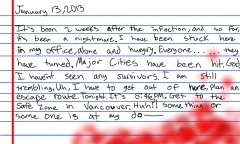 January 13, 2013
It's been 2 weeks after the infection, and so far,
it's been a nightmare. I have been stuck here
in my office, alone and hungry. Everyone..... they
have turned. Major Cities have been hit. God,
I haven't seen any survivors. I am still
trembling. Uh, I have to get out of here. Plan an
escape route. Tonight. It's 6:46 PM. Get to the
Safe Zone in Vancouver. Huh!! Something or
some one is at my do